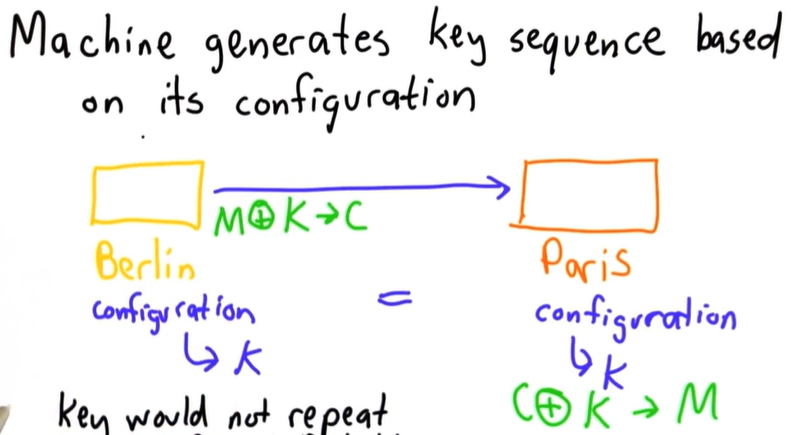 Machine generates key sequence based
on its configuration
M⊕K→C
Berlin
Paris
configuration
=
configuration
↳ K
↳ K
C⊕K → M
key would not repeat